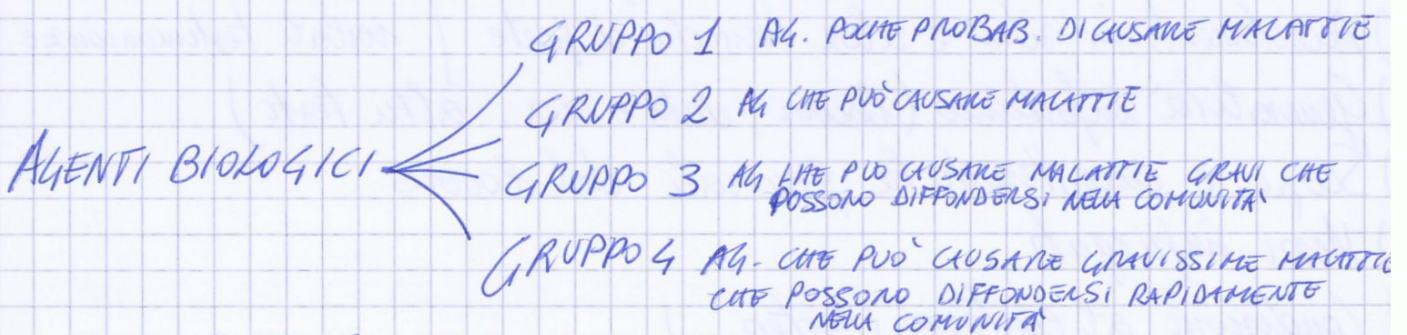 GRUPPO 1 AG. POCHE PROBAB. DI CAUSARE MALATTIE
GRUPPO 2 AG CHE PUÒ CAUSARE MALATTIE
AGENTI BIOLOGICI
GRUPPO 3 AG CHE PUO CAUSARE MALATTIE GRAVI CHE
POSSONO DIFFONDERSI NELLA COMUNITÀ
GRUPPO 4 AG. CHE PUÒ CAUSARE GRAVISSIME MALATTIE
CHE POSSONO DIFFONDERSI RAPIDAMENTE
NELLA COMUNITÀ